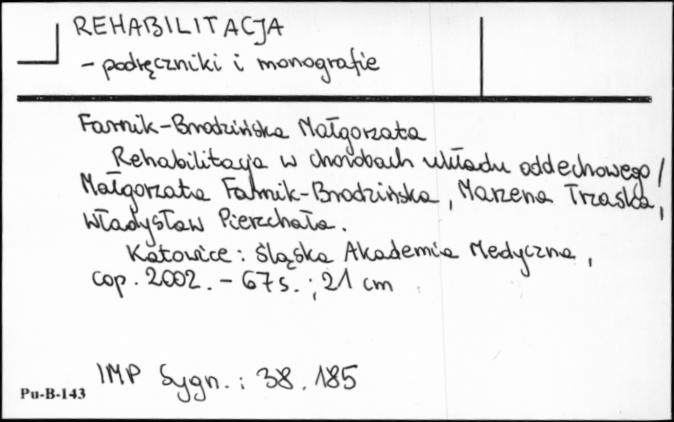 REHABILITACJA
- podręczniki i monografie
Farnik-Brodzińska Małgorzata
Rehabilitacja w chorobach układu oddechowego /
Małgorzata Farnik-Brodzińska, Marzena Trzaska,
Władysław Pierzchała.
Katowice : Śląska Akademia Medyczna,
cop. 2002. - 67 s. ; 21 cm
IMP Sygn. : 38.185
Pu-B-143